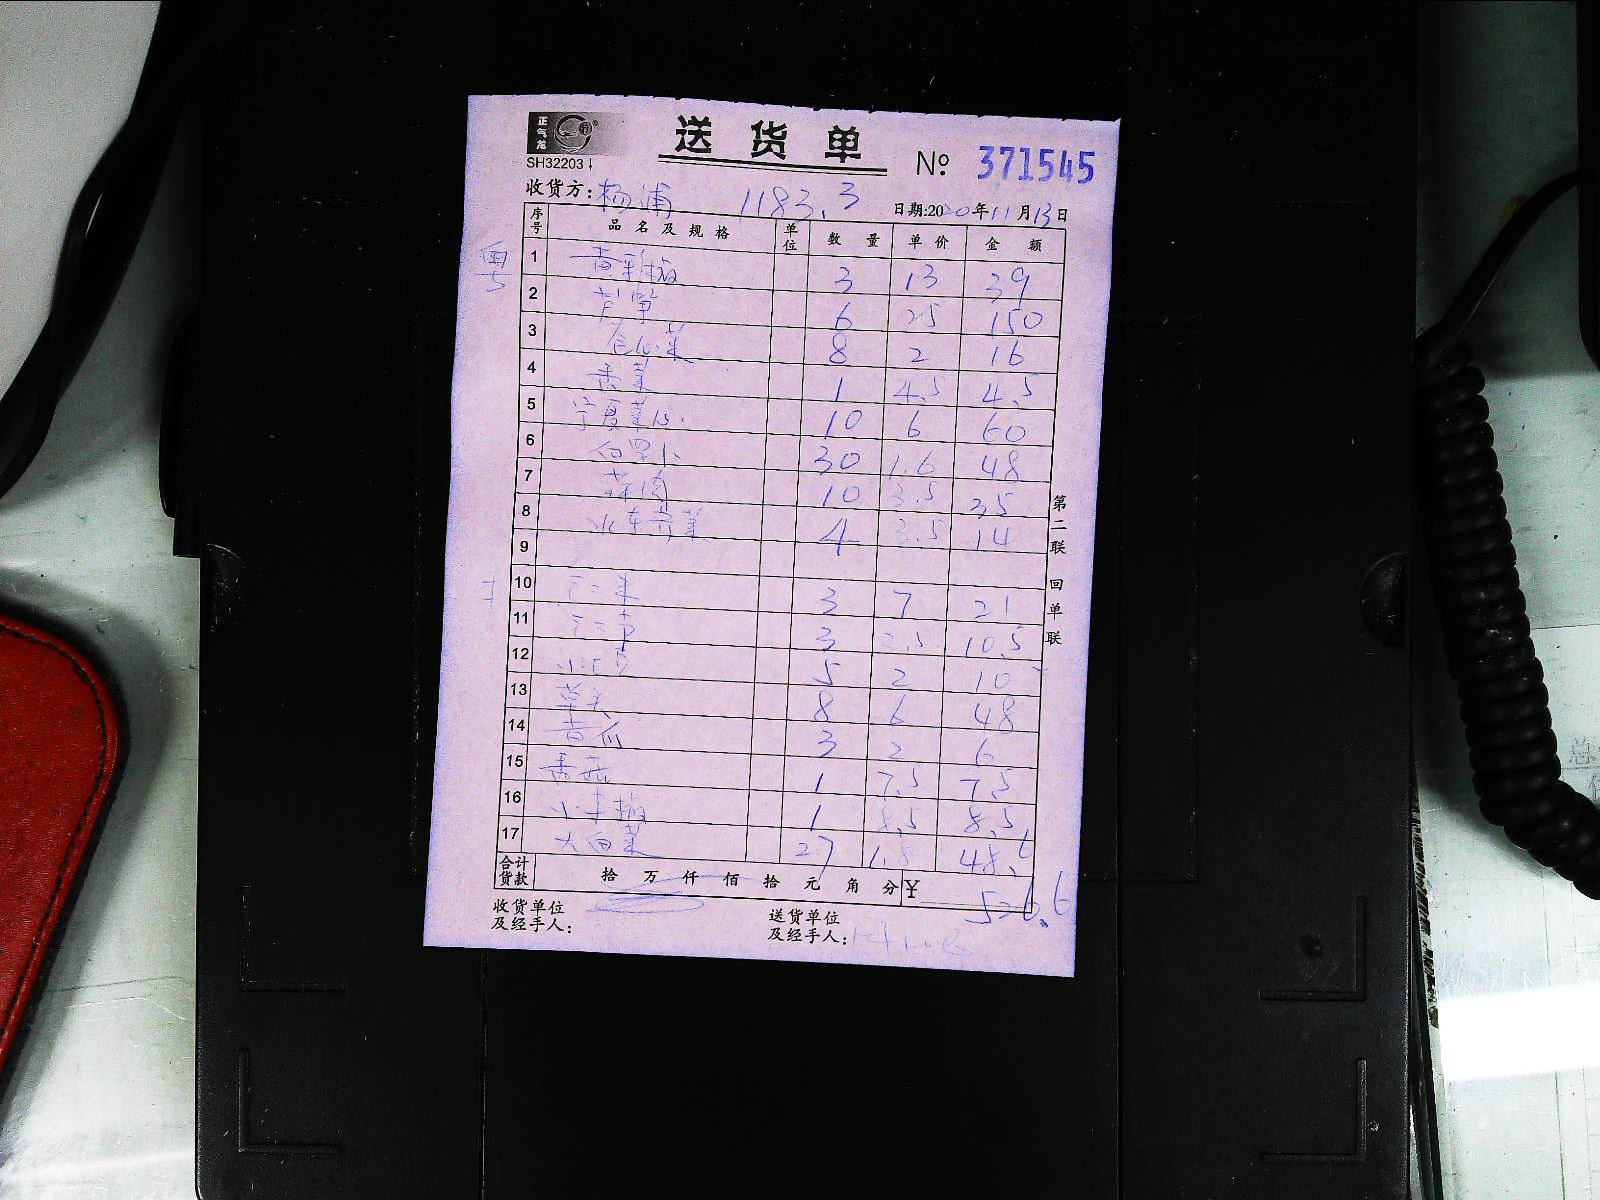 正气龙
送货单
SH32203↓
№ 371545
收货方:杨浦 1183.3 日期:2020年11月13日
序号 品名及规格 单位 数量 单价 金额
粤
1 青彩椒 3 13 39
2 芦笋 6 25 150
3 2 16 8
4 香菜 1 4.5 4.5
5 宁夏菜心 10 6 60
6 白罗卜 30 1.6 48
7 10 3.5 35
8 水东芥菜 4 3.5 14
9
10 3 7 21
11 3 3.5 10.5
12 5 2 10
13 8 6 48
14 青瓜 3 2 6
15 香菇 1 7.5 7.5
16 小米椒 1 8.5 8.5
17 大白菜 27 1.8 48.6
合计货款 拾 万 仟 佰 拾 元 角 分 ¥ 526.6
收货单位及经手人: 送货单位及经手人:
第二联 回单联